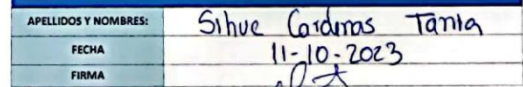 APELLIDOS Y NOMBRES: Sihue Cardenas Tania
FECHA 11-10-2023
FIRMA